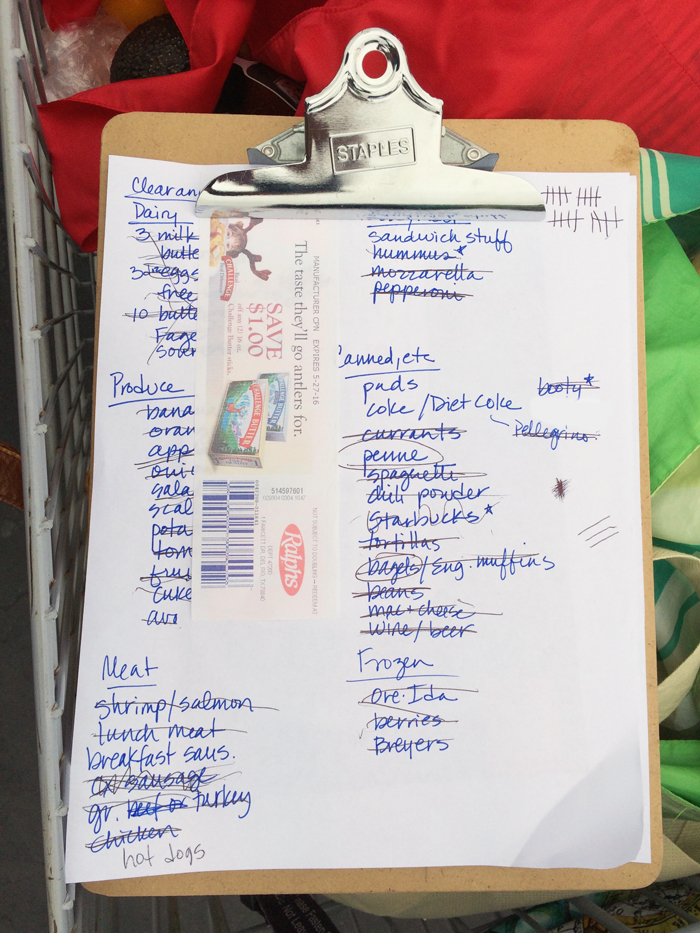 STAPLES
Clearan
Dairy
3 milk
butte
3 eggs
free
10 butt
Fage
sour
Produce
bana
oran
app
oni
sala
scal
pota
tom
cuke
avo
Meat
shrimp/salmon
lunch meat
breakfast saus.
sausage
gr. beef or turkey
chicken
hot dogs
MANUFACTURER CPN EXPIRES 5-27-16
The taste they'll go antlers for.
SAVE
$1.00
off any (2) 16 oz.
Challenge Butter sticks.
CHALLENGE
CHALLENGE BUTTER
514597601
NOT SUBJECT TO DOUBLING - REDEEM AT
Ralphs
sandwich stuff
hummus*
mozzarella
pepperoni
anned, etc
pads
booty*
Coke / Diet Coke
Pellegrino
currants
penne
spaghetti
chili powder
Starbucks*
tortillas
bagels/Eng. muffins
beans
mac + cheese
wine/beer
Frozen
Ore-Ida
berries
Breyers